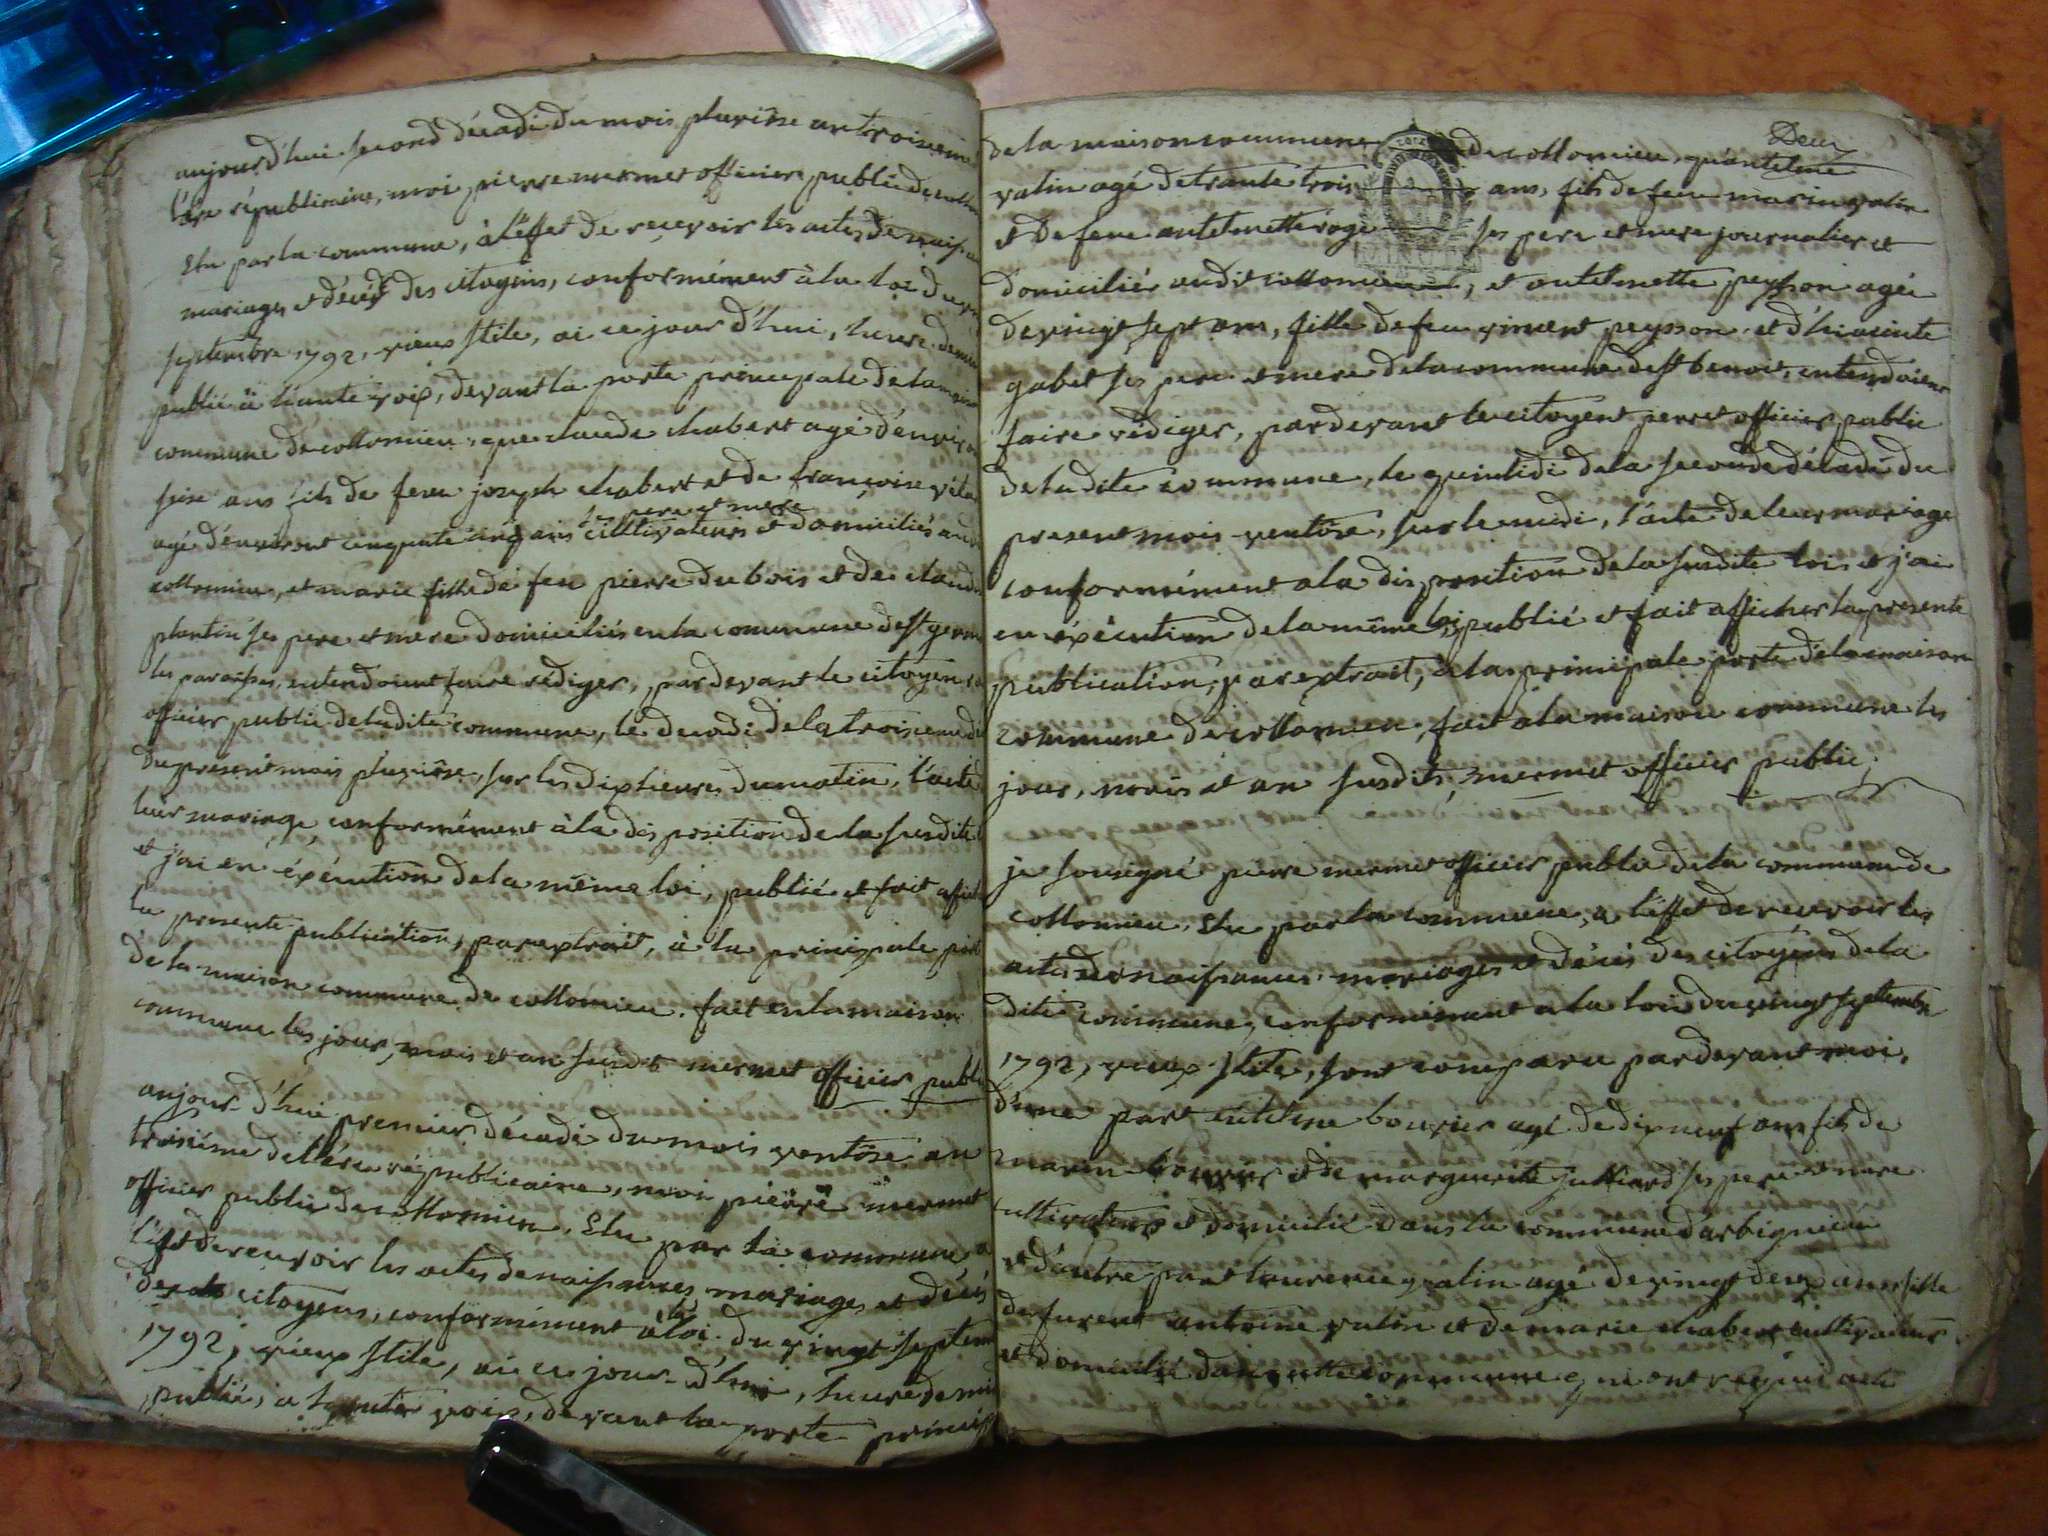 aujourd'hui second décadi du mois pluviôse an troisieme
l'ère républicaine, moi pierre mermet officier public de
Elu par la commune, à l'effet de recevoir les actes de
mariages et décés des citoyens, conformément à la loi du
septembre 1792, vieux stile, ai ce jour d'hui, heure de
publié à haute voix, devant la porte principale de la
commune de collomieu, que claude chabert agé d'environ
seise ans fils de feu joseph chabert et de françoise
ses pere et mere
agé d'environt cinquante cinq ans cultivateurs et domiciliés
collomieu, et marie fille de feu pierre dubois et de
plantin ses pere et mere domiciliés en la commune de st germ
les paroisses, entendoient faire rédiger, pardevant le citoyen
officier public de ladite commune, le decadi de la troisieme
du present mois pluviôse, sur les dix heures du matin, l'acte
leur mariage, conformément à la disposition de la susdite
et j'ai en éxécution de la même loi, publié et fait
la presente publication, par extrait, à la principale
de la maison commune de collomieu. fait en la maison
commune les jour, mois et an susdits mermet officier publi
aujourd'hui premier décadi du mois ventôse an
troisième de l'ére républicaine, moi pierre mermet
officier public de collomieu, Elu par la commune, a
l'effet de recevoir les actes de naissances, mariages et décés
citoyens, conformément a la loi du vingt septem
1792, vieux stile, ai ce jour d'hui, heure de midi
publié, a haute voix, devant la porte princip
Deux
de la maison commune de collomieu, qu'antelme
valin agé de trante trois ans, fils de feu marin valin
et de feue antelmette ses pere et mere journalier et
MINUTE
domicilié audit collomieu, et antelmette peysson agée
de vingt sept ans, fille de feu vincent peysson et d'hiacinte
gabet ses pere et mere de la commune de st benoit, entendoient
faire rédiger, pardevant le citoyent perret officier public
de ladite commune, le quintidi de la seconde décadi du
present mois ventôse, sur le midi, l'acte de leur mariage
conformément a la disposition de la susdite loi, et j'ai
en éxécution de la même loi, publié et fait afficher la presente
publication, par extrait, à la principale porte de la maison
commune de collomieu, fait a la maison commune les
jour, mois et an susdits, mermet officier public,
je sousigné pierre mermet officier public de la commune de
collomieu, Elu par la commune, a l'effet de recevoir les
actes de naissances, mariages et décés des citoyens de la
dite commune, conformément a la loi du vingt septembre
1792, vieux stile, sont comparu pardevant moi,
d'une part antelme bouvier agé de dixneuf ans fils de
marin bouvier et de marguerite julliard ses pere et mere
cultivateurs et domicilié dans la commune d'arbignieu
et d'autre part laurence valin agé de vingt deux ans fille
de furent antoine valin et de marie chabert cultivateurs
et domicilié dans cette commune, ni ont requi acte